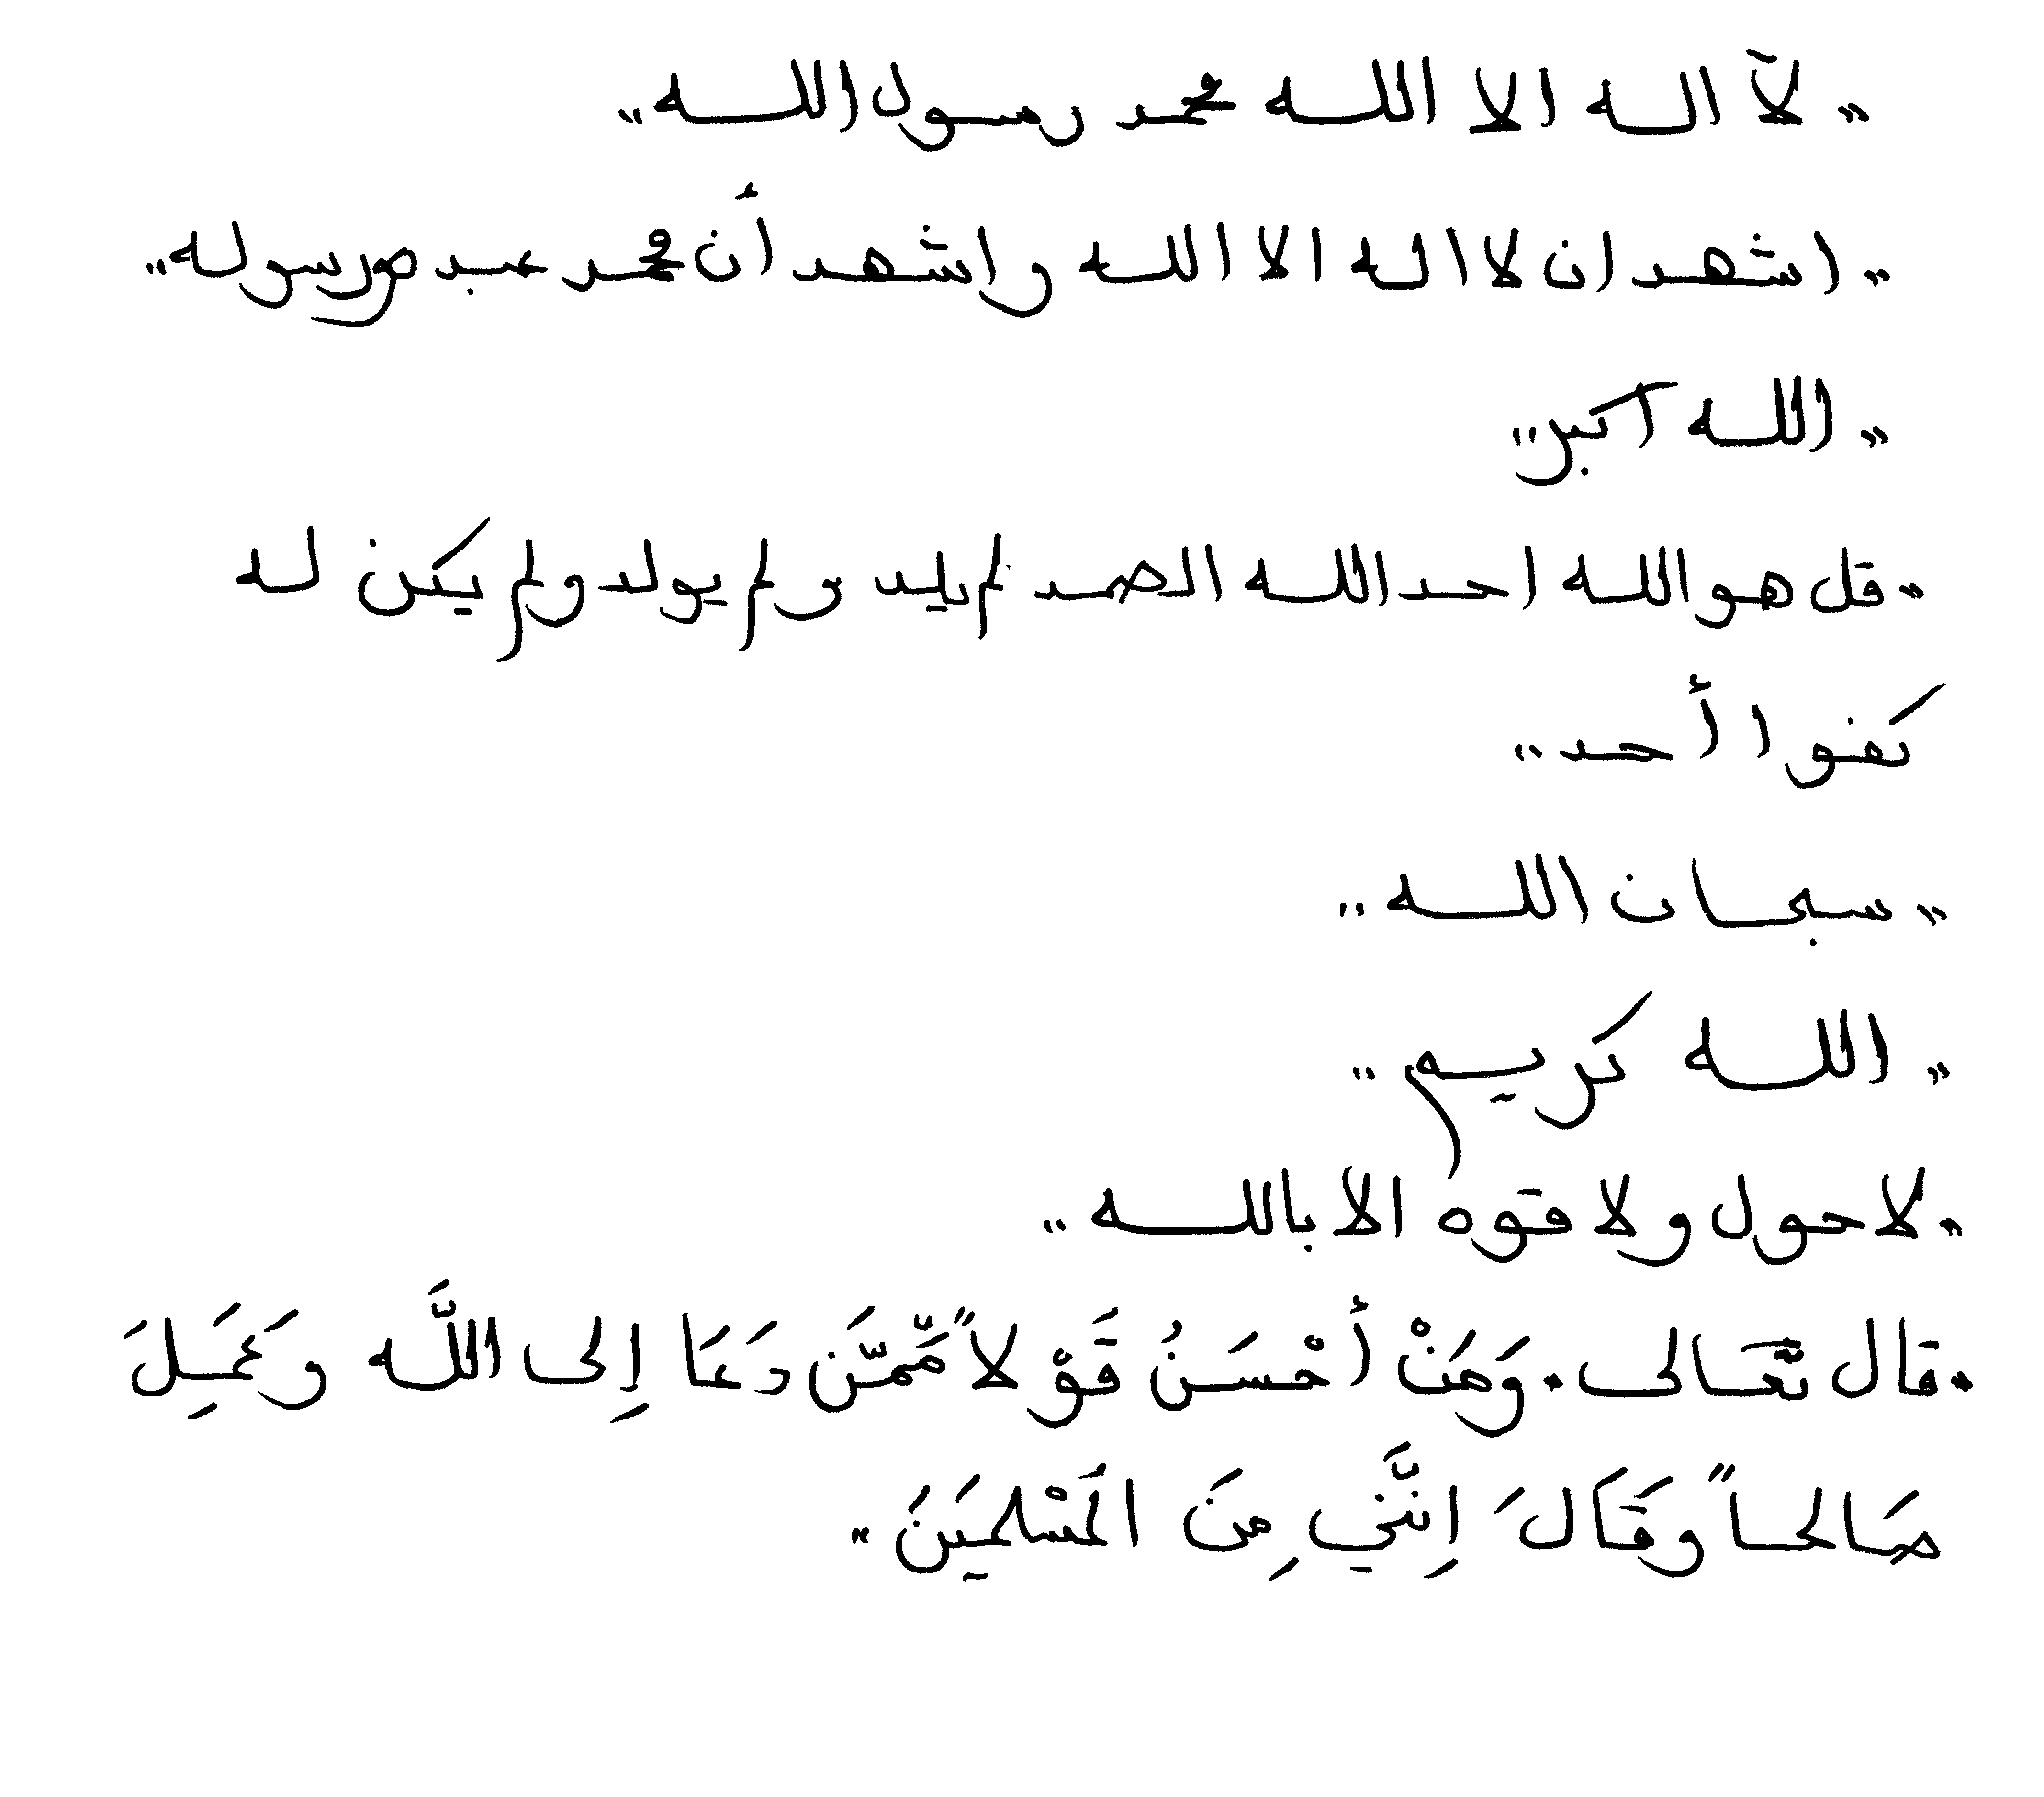 "لآ اله الا الله محمد رسول الله"
"اشهد ان لا اله الا الله واشهد أن محمد عبده ورسوله"
"الله اكبر"
"قل هو الله احد الله الصمد لم يلد ولم يولد ولم يكن له
كفوا أحد"
"سبحان الله"
"الله كريم"
"لا حول ولا قوه الا بالله"
"قال تعالى. وَمَنْ أحْسَنُ قَوْلاً مِّمَّن دَعَا إِلى اللَّه وَعَمَِلَ
صَالحاً وقَالَ إِنَّني مِنَ المُسْلميَنَ"